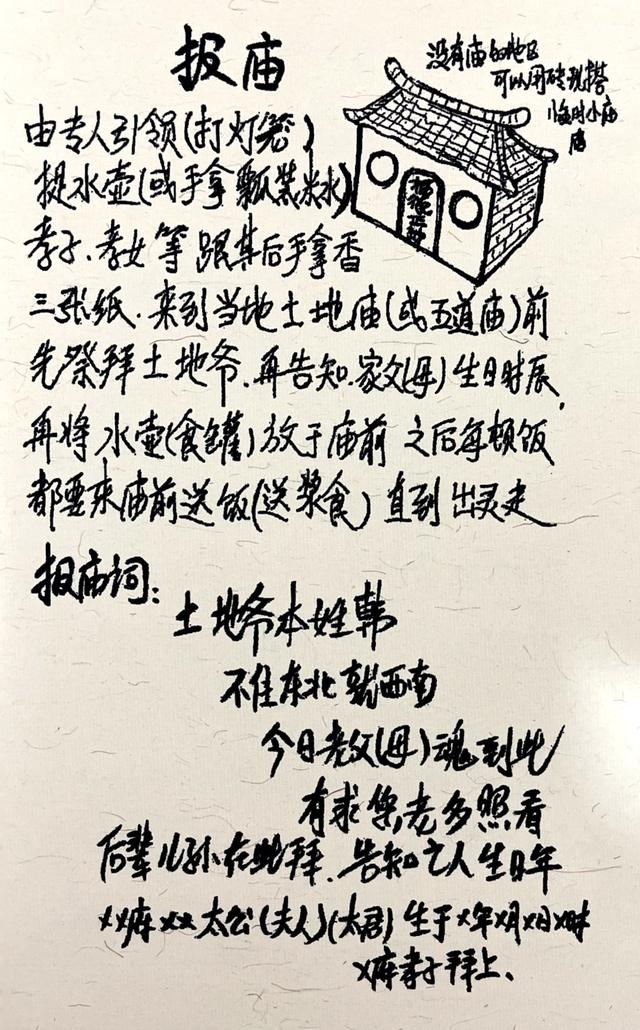 报庙
没有庙的地区
可以用砖现搭
临时小庙
由专人引领(打灯笼)
提水壶(或手拿瓢装米水)
孝子、孝女等跟其后手拿香
三张纸.来到当地土地庙(或五道庙)前
先祭拜土地爷.再告知.家父(母)生日时辰,
再将水壶(食罐)放于庙前 之后每顿饭
都要来庙前送饭(送浆食) 直到出灵走
报庙词:
土地爷本姓韩
不住东北就西南
今日老父(母)魂到此
有求您老多照看
后辈儿孙在此拜.告知亡人生日年
xx府xx太公(夫人)(太君)生于x年x月x日x时
x府孝子拜上.